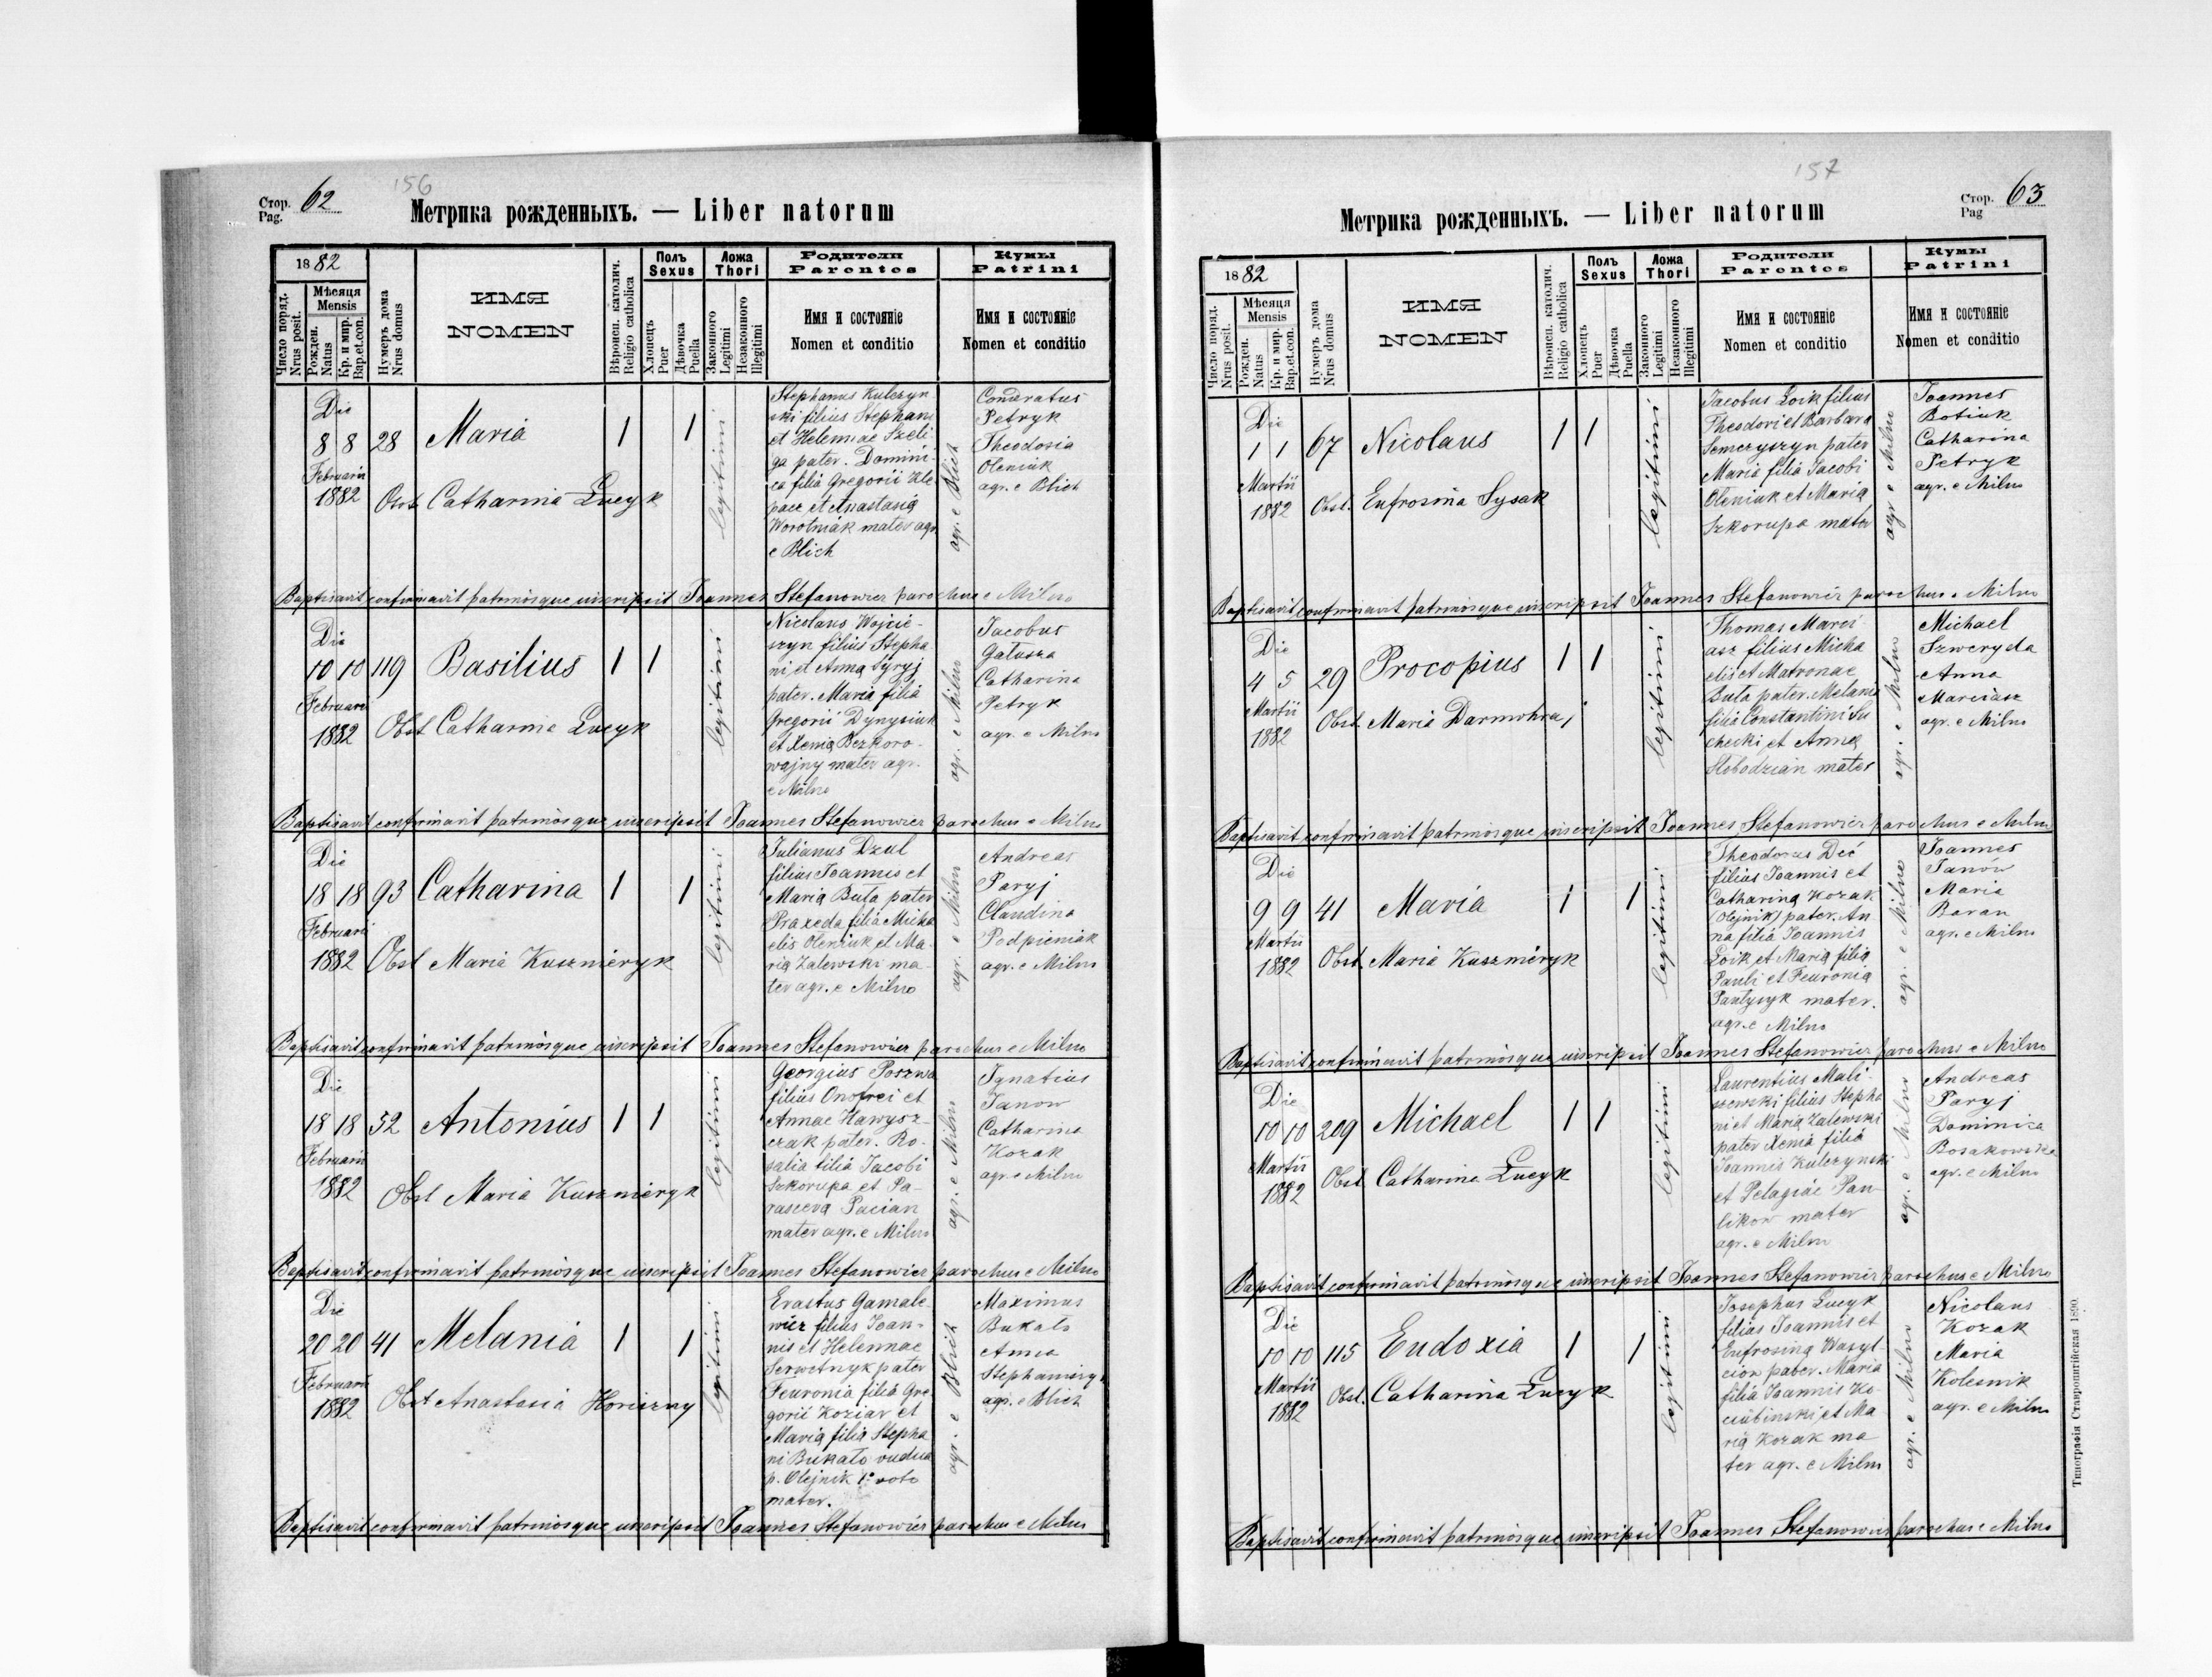 156
Стор. 62
Pag.
Метрика рожденныхъ. — Liber natorum
18 82
Число поряд.
Nrus posit.
Мѣсяца
Mensis
Рожден.
Natus
Кр. и мир.
Bap.et.con.
Нумеръ дома
Nrus domus
ИМЯ
NOMEN
Вѣроисп. католич.
Religio catholica
Полъ
Sexus
Хлопецъ
Puer
Дѣвочка
Puella
Ложа
Thori
Законного
Legitimi
Незаконного
Illegitimi
Родители
Parentes
Имя и состоянiе
Nomen et conditio
Кумы
Patrini
Имя и состоянiе
Nomen et conditio
Die
8 8 28 Maria 1 1
Februarii
1882
Obst Catharina Lucyk
legitimi
Stephanus Kulczyn
ski filius Stephani
et Helennae Szeli
ga pater. Domini
ca filia Gregorii Kle
pacz et Anastasia
Worotniak mater agr.
e Blich
agr. e Blich
Condratus
Petryk
Theodosia
Oleniuk
agr. e Blich
Baptisavit confirmavit patrinosque inscripsit Joannes Stefanowicz parochus e Milno
Die
10 10 119 Basilius 1 1
Februarii
1882
Obst Catharina Lucyk
legitimi
Nicolaus Wojcie-
szyn filius Stepha
ni et Anna Syryj
pater. Maria filia
Gregorii Dynysiuk
et Xenia Bezkoro-
wajny mater agr.
e Milno
agr. e Milno
Jacobus
Galusza
Catharina
Petryk
agr. e Milno
Baptisavit confirmavit patrinosque inscripsit Joannes Stefanowicz parochus e Milno
Die
18 18 93 Catharina 1 1
Februarii
1882
Obst Maria Kuszmeryk
legitimi
Julianus Dzul
filius Joannis et
Maria Buta pater
Praxeda filia Micha
elis Oleniuk et Ma-
ria Zalewski ma-
ter agr. e Milno
agr. e Milno
Andreas
Paryj
Claudina
Podpieniak
agr. e Milno
Baptisavit confirmavit patrinosque inscripsit Joannes Stefanowicz parochus e Milno
Die
18 18 52 Antonius 1 1
Februarii
1882
Obst Maria Kuszmeryk
legitimi
Georgius Poszwa
filius Onofrei et
Annae Hawysz-
czak pater. Ro-
salia filia Jacobi
Szkorupa et Pa-
rasceva Pacian
mater agr. e Milno
agr. e Milno
Ignatius
Janow
Catharina
Kozak
agr. e Milno
Baptisavit confirmavit patrinosque inscripsit Joannes Stefanowicz parochus e Milno
Die
20 20 41 Melania 1 1
Februarii
1882
Obst Anastasia Horiszny
legitimi
Erastus Gamale
wicz filius Joan-
nis et Helennae
Serwetnyk pater
Feuronia filia Gre
gorii Koziar et
Maria filia Stepha
ni Bukalo vudua
p. Olejnik 1º voto
mater.
agr. e Blich
Maximus
Bukalo
Anna
agr. e Blich
Baptisavit confirmavit patrinosque inscripsit Joannes Stefanowicz parochus e Milno
157
Стор. 63
Pag
Метрика рожденныхъ. — Liber natorum
18 82
Число поряд.
Nrus posit.
Мѣсяца
Mensis
Рожден.
Natus
Кр. и мир.
Bap.et.con.
Нумеръ дома
Nrus domus
ИМЯ
NOMEN
Вѣроисп. католич.
Religio catholica
Полъ
Sexus
Хлопецъ
Puer
Дѣвочка
Puella
Ложа
Thori
Законного
Legitimi
Незаконного
Illegitimi
Родители
Parentes
Имя и состоянiе
Nomen et conditio
Кумы
Patrini
Имя и состоянiе
Nomen et conditio
Die
1 1 67 Nicolaus 1 1
Martii
1882
Obst. Eufrosina Sysak
legitimi
Jacobus Loik filius
Theodori et Barbara
Semczyszyn pater
Maria filia Jacobi
Oleniuk et Maria
Szkorupa mater
agr e Milno
Joannes
Botiuk
Catharina
Petryk
agr. e Milno
Baptisavit confirmavit patrinosque inscripsit Joannes Stefanowicz parochus e Milno
Die
4 5 29 Procopius 1 1
Martii
1882
Obst. Maria Darmohraj
legitimi
Thomas Marci
asz filius Micha
elis et Matronae
Buta pater. Melania
filia Constantini Su
checki et Anna
Slobodzian mater
agr. e Milno
Michael
Szweryda
Anna
Marciasz
agr. e Milno
Baptisavit confirmavit patrinosque inscripsit Joannes Stefanowicz parochus e Milno
Die
9 9 41 Maria 1 1
Martii
1882
Obst. Maria Kuszmeryk
legitimi
Theodorus Deć
filius Joannis et
Catharina Kozak
(Olejnik) pater. An
na filia Joannis
Loik et Maria filia
Pauli et Feuronia
Pantycyk mater.
agr. e Milno
agr. e Milno
Joannes
Janów
Maria
Baran
agr. e Milno
Baptisavit confirmavit patrinosque inscripsit Joannes Stefanowicz parochus e Milno
Die
10 10 209 Michael 1 1
Martii
1882
Obst Catharina Lucyk
legitimi
Laurentius Mali-
szewski filius Stepha
ni et Maria Zalewski
pater Xenia filia
Joannis Kulczynski
et Pelagiae Paw
likow mater
agr. e Milno
agr. e Milno
Andreas
Paryj
Dominica
Bosakowska
agr. e Milno
Baptisavit confirmavit patrinosque inscripsit Joannes Stefanowicz parochus e Milno
Die
10 10 115 Eudoxia 1 1
Martii
1882
Obst. Catharina Lucyk
legitimi
Josephus Lucyk
filius Joannis et
Eufrosina Wasyl-
ciow pater. Maria
filia Joannis Ko-
ciubinski et Ma
ria Kozak ma
ter agr. e Milno
agr. e Milno
Nicolaus
Kozak
Maria
Kolesnik
agr. e Milno
Baptisavit confirmavit patrinosque inscripsit Joannes Stefanowicz parochus e Milno
Типографія Ставропигійская 1890.